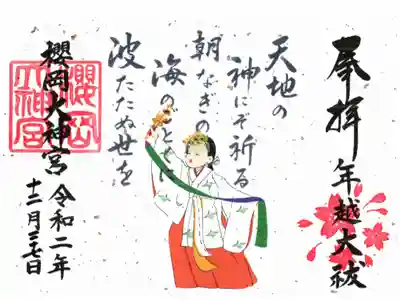 奉拝 年越大祓
天地の
神にぞ祈る
朝なぎの
海のごとくに
波たたぬ世を
櫻岡大神宮
櫻岡大神宮
令和二年
十二月